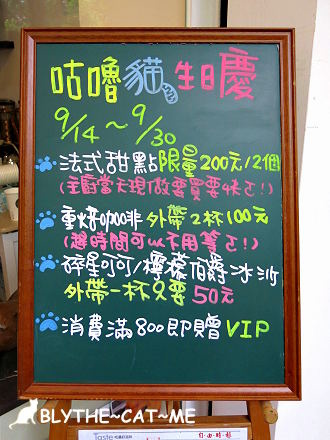 咕嚕貓生日慶
9/14~9/30
法式甜點限量200元/2個
(主廚當天現做要買要快了!)
重烤咖啡外帶2杯100元
(離時間可以不用等了!)
碎星可可/檸檬伯爵冰沙
外帶一杯只要50元
消費滿800即贈VIP
BLYTHE~CAT~ME
Taste
自由時報